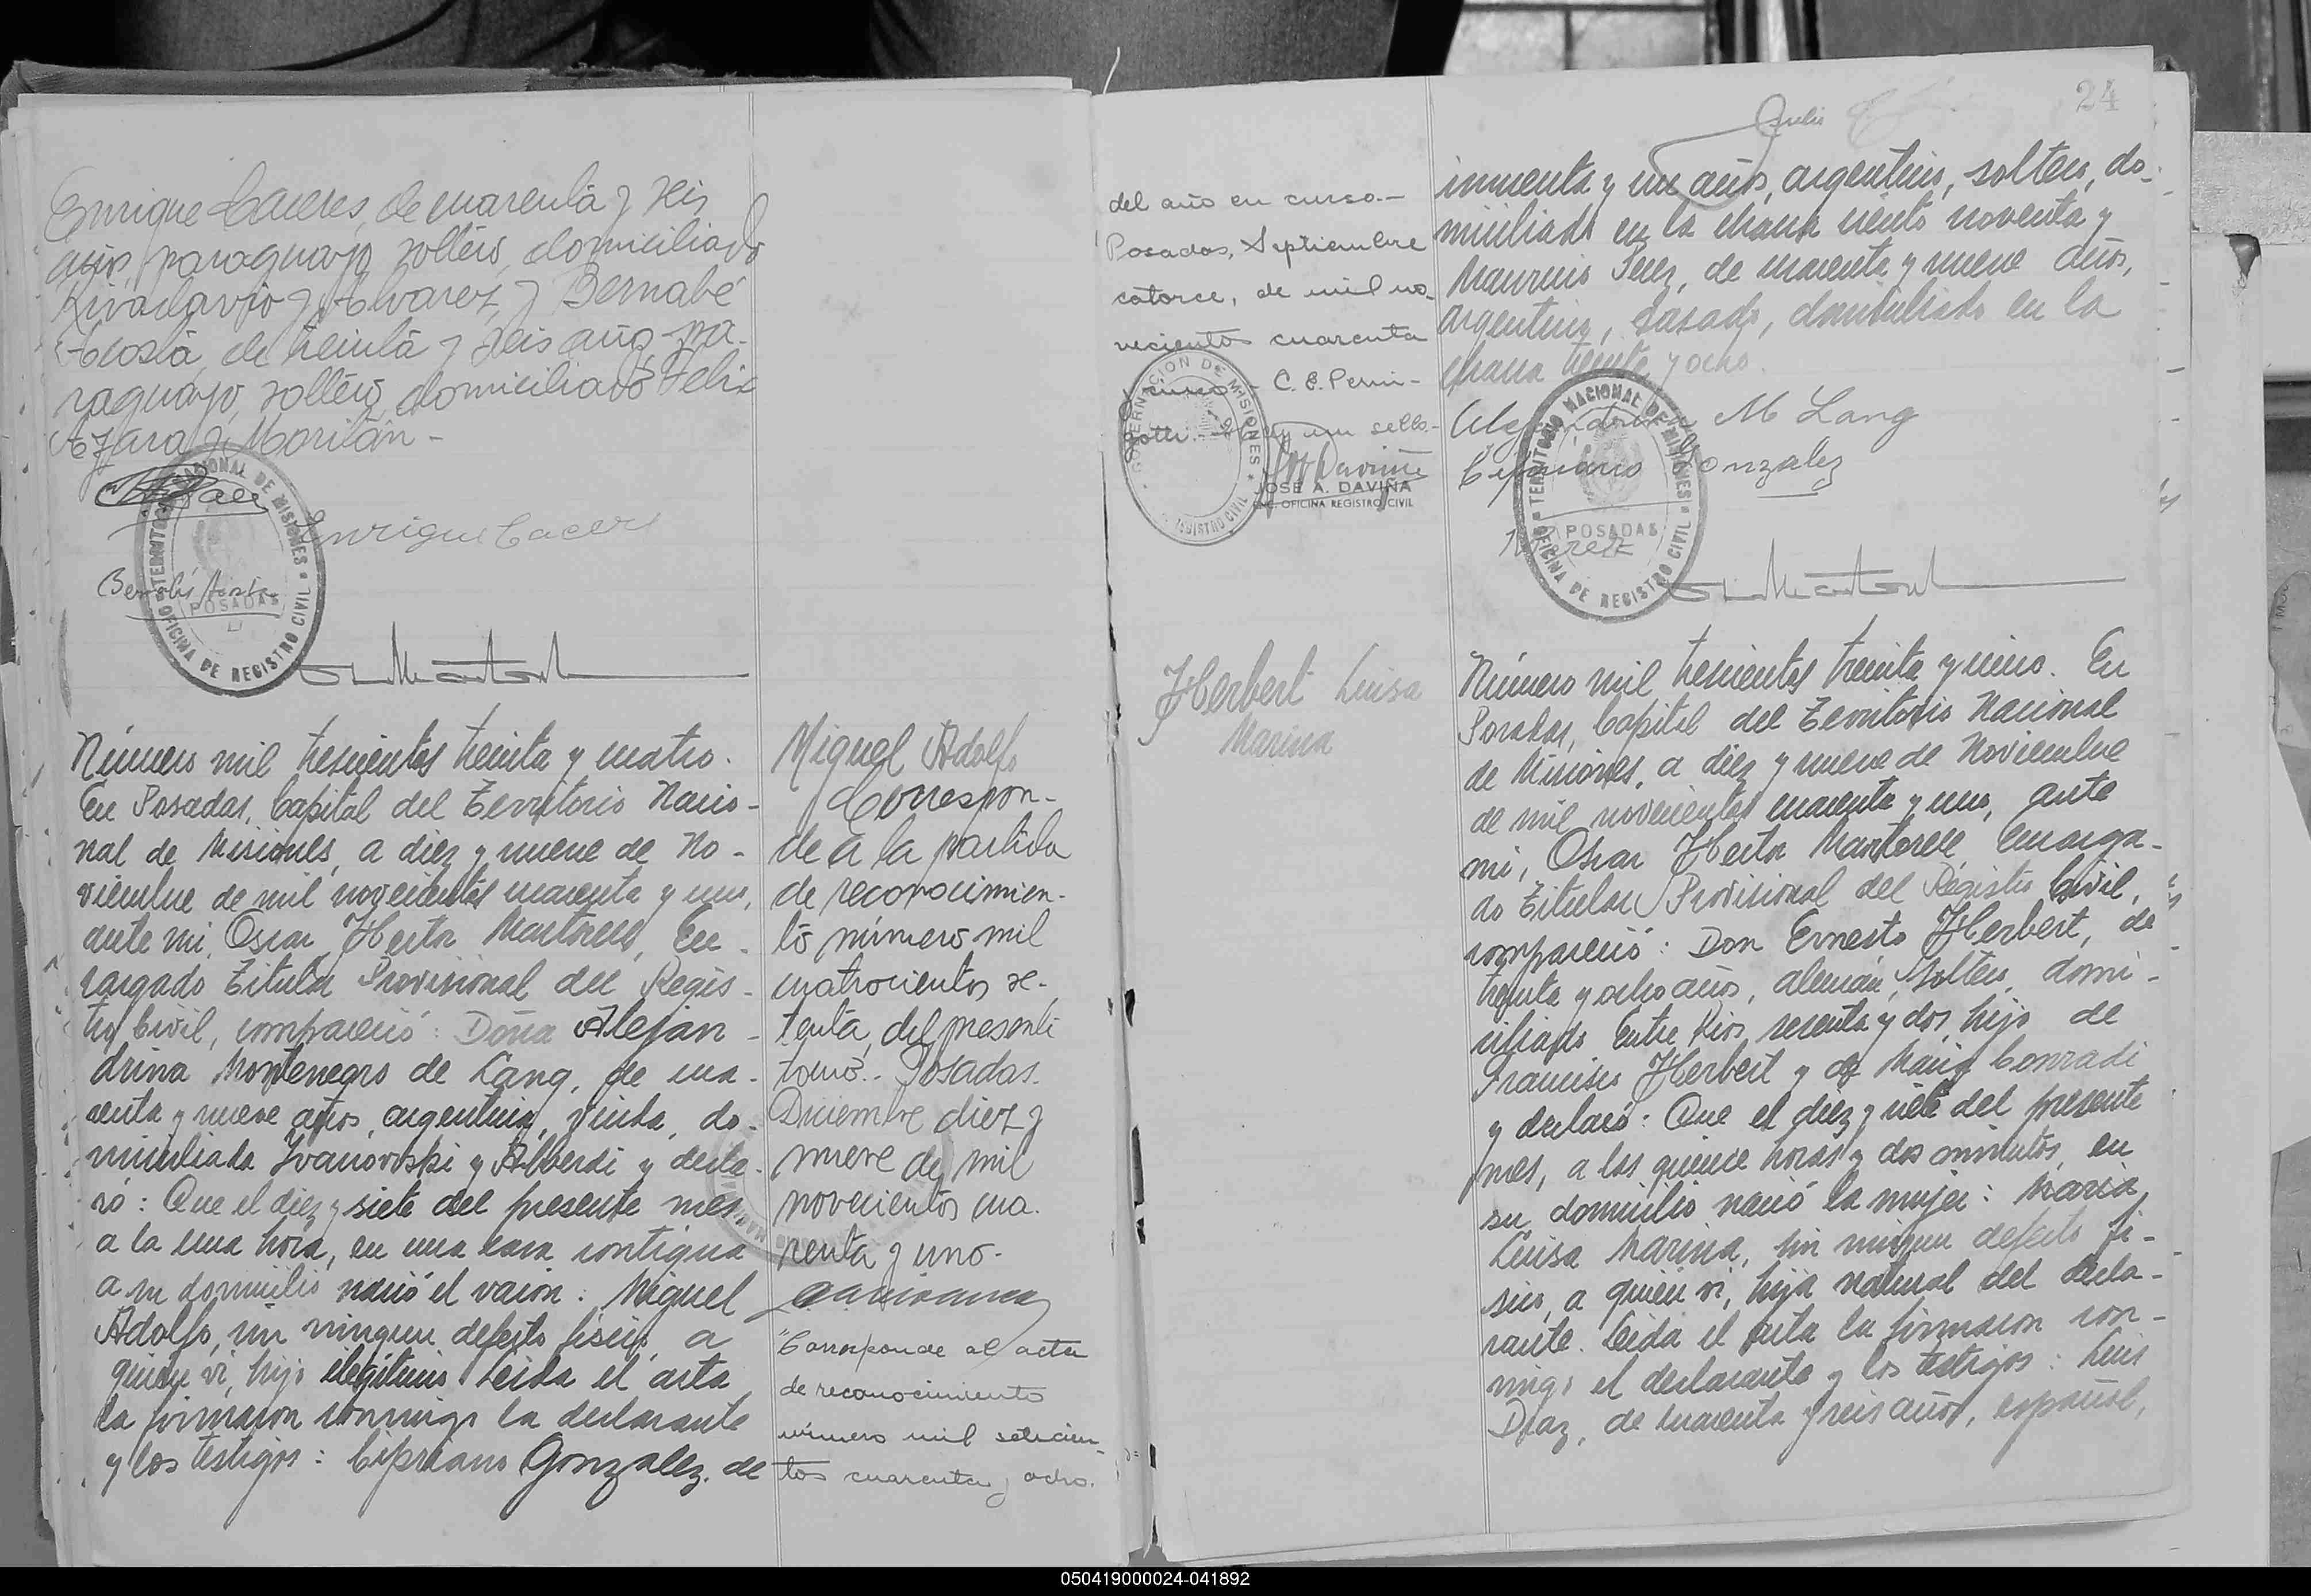 Enrique Caceres, de cuarenta y seis
años, paraguayo, soltero, domiciliado
Rivadavia y Alvarez, y Bernabé
Acosta, de treinta y seis años, pa-
raguayo, soltero, domiciliado Felix
Azara y
Enrique Caceres
Bernabé Acosta
TERRITORIO NACIONAL DE MISIONES
POSADAS
OFICINA DE REGISTRO CIVIL
Número mil trescientos treinta y cuatro.
En Posadas, Capital del Territorio Nacio-
nal de Misiones, a diez y nueve de No-
viembre de mil novecientos cuarenta y uno,
ante mi, Oscar Hector Martorell, En-
cargado Titular Provisional del Regis-
tro Civil, compareció: Doña Alejan-
drina Montenegro de Lang, de cua-
renta y nueve años, argentina, viuda, do-
miciliada Ivanovski y Alberdi y decla-
ró: Que el diez y siete del presente mes,
a la una hora, en una casa contigua
a su domicilio nació el varón: Miguel
Adolfo, sin ningun defecto fisico, a
quien vi, hijo ilegitimo. Leida el acta
la firmaron conmigo la declarante
y los testigos: Cipriano Gonzalez, de
Miguel Adolfo
Correspon-
de a la partida
de reconocimien-
to número mil
cuatrocientos se-
tenta, del presente
tomo.- Posadas.
Diciembre diez y
nueve de mil
novecientos cua-
renta y uno-
"Corresponde al acta
de reconocimiento
número mil setecien-
tos cuarenta y ocho.
del año en curso.-
Posadas, Septiembre
catorce, de mil no-
vecientos cuarenta
y uno - C. E. Perni-
Hay un sello.-
GOBERNACION DE MISIONES
REGISTRO CIVIL
JOSE A. DAVIÑA
ENC. OFICINA REGISTRO CIVIL
24
cincuenta y un años, argentino, soltero, do-
miciliado en la chacra ciento noventa y
Mauricio Perez, de cuarenta y nueve años,
argentino, casado, domiciliado en la
chacra treinta y ocho.
Alejandrina M Lang
Cipriano Gonzalez
M Perez
TERRITORIO NACIONAL DE MISIONES
POSADAS
OFICINA DE REGISTRO CIVIL
Herbert Luisa
Marina
Número mil trescientos treinta y cinco. En
Posadas, Capital del Territorio Nacional
de Misiones, a diez y nueve de Noviembre
de mil novecientos cuarenta y uno, ante
mi, Oscar Hector Martorell, Encarga-
do Titular Provisional del Registro Civil,
compareció: Don Ernesto Herbert, de
treinta y ocho años, alemán, soltero, domi-
ciliado Entre Rios sesenta y dos, hijo de
Francisco Herbert y de Maria Conradi
y declaró: Que el diez y siete del presente
mes, a las quince horas y dos minutos, en
su domicilio nació la mujer: Maria
Luisa Marina, sin ningun defecto fi-
sico, a quien vi, hija natural del decla-
rante. Leida el acta la firmaron con-
migo el declarante y los testigos: Luis
Diaz, de cuarenta y seis años, español,
050419000024-041892